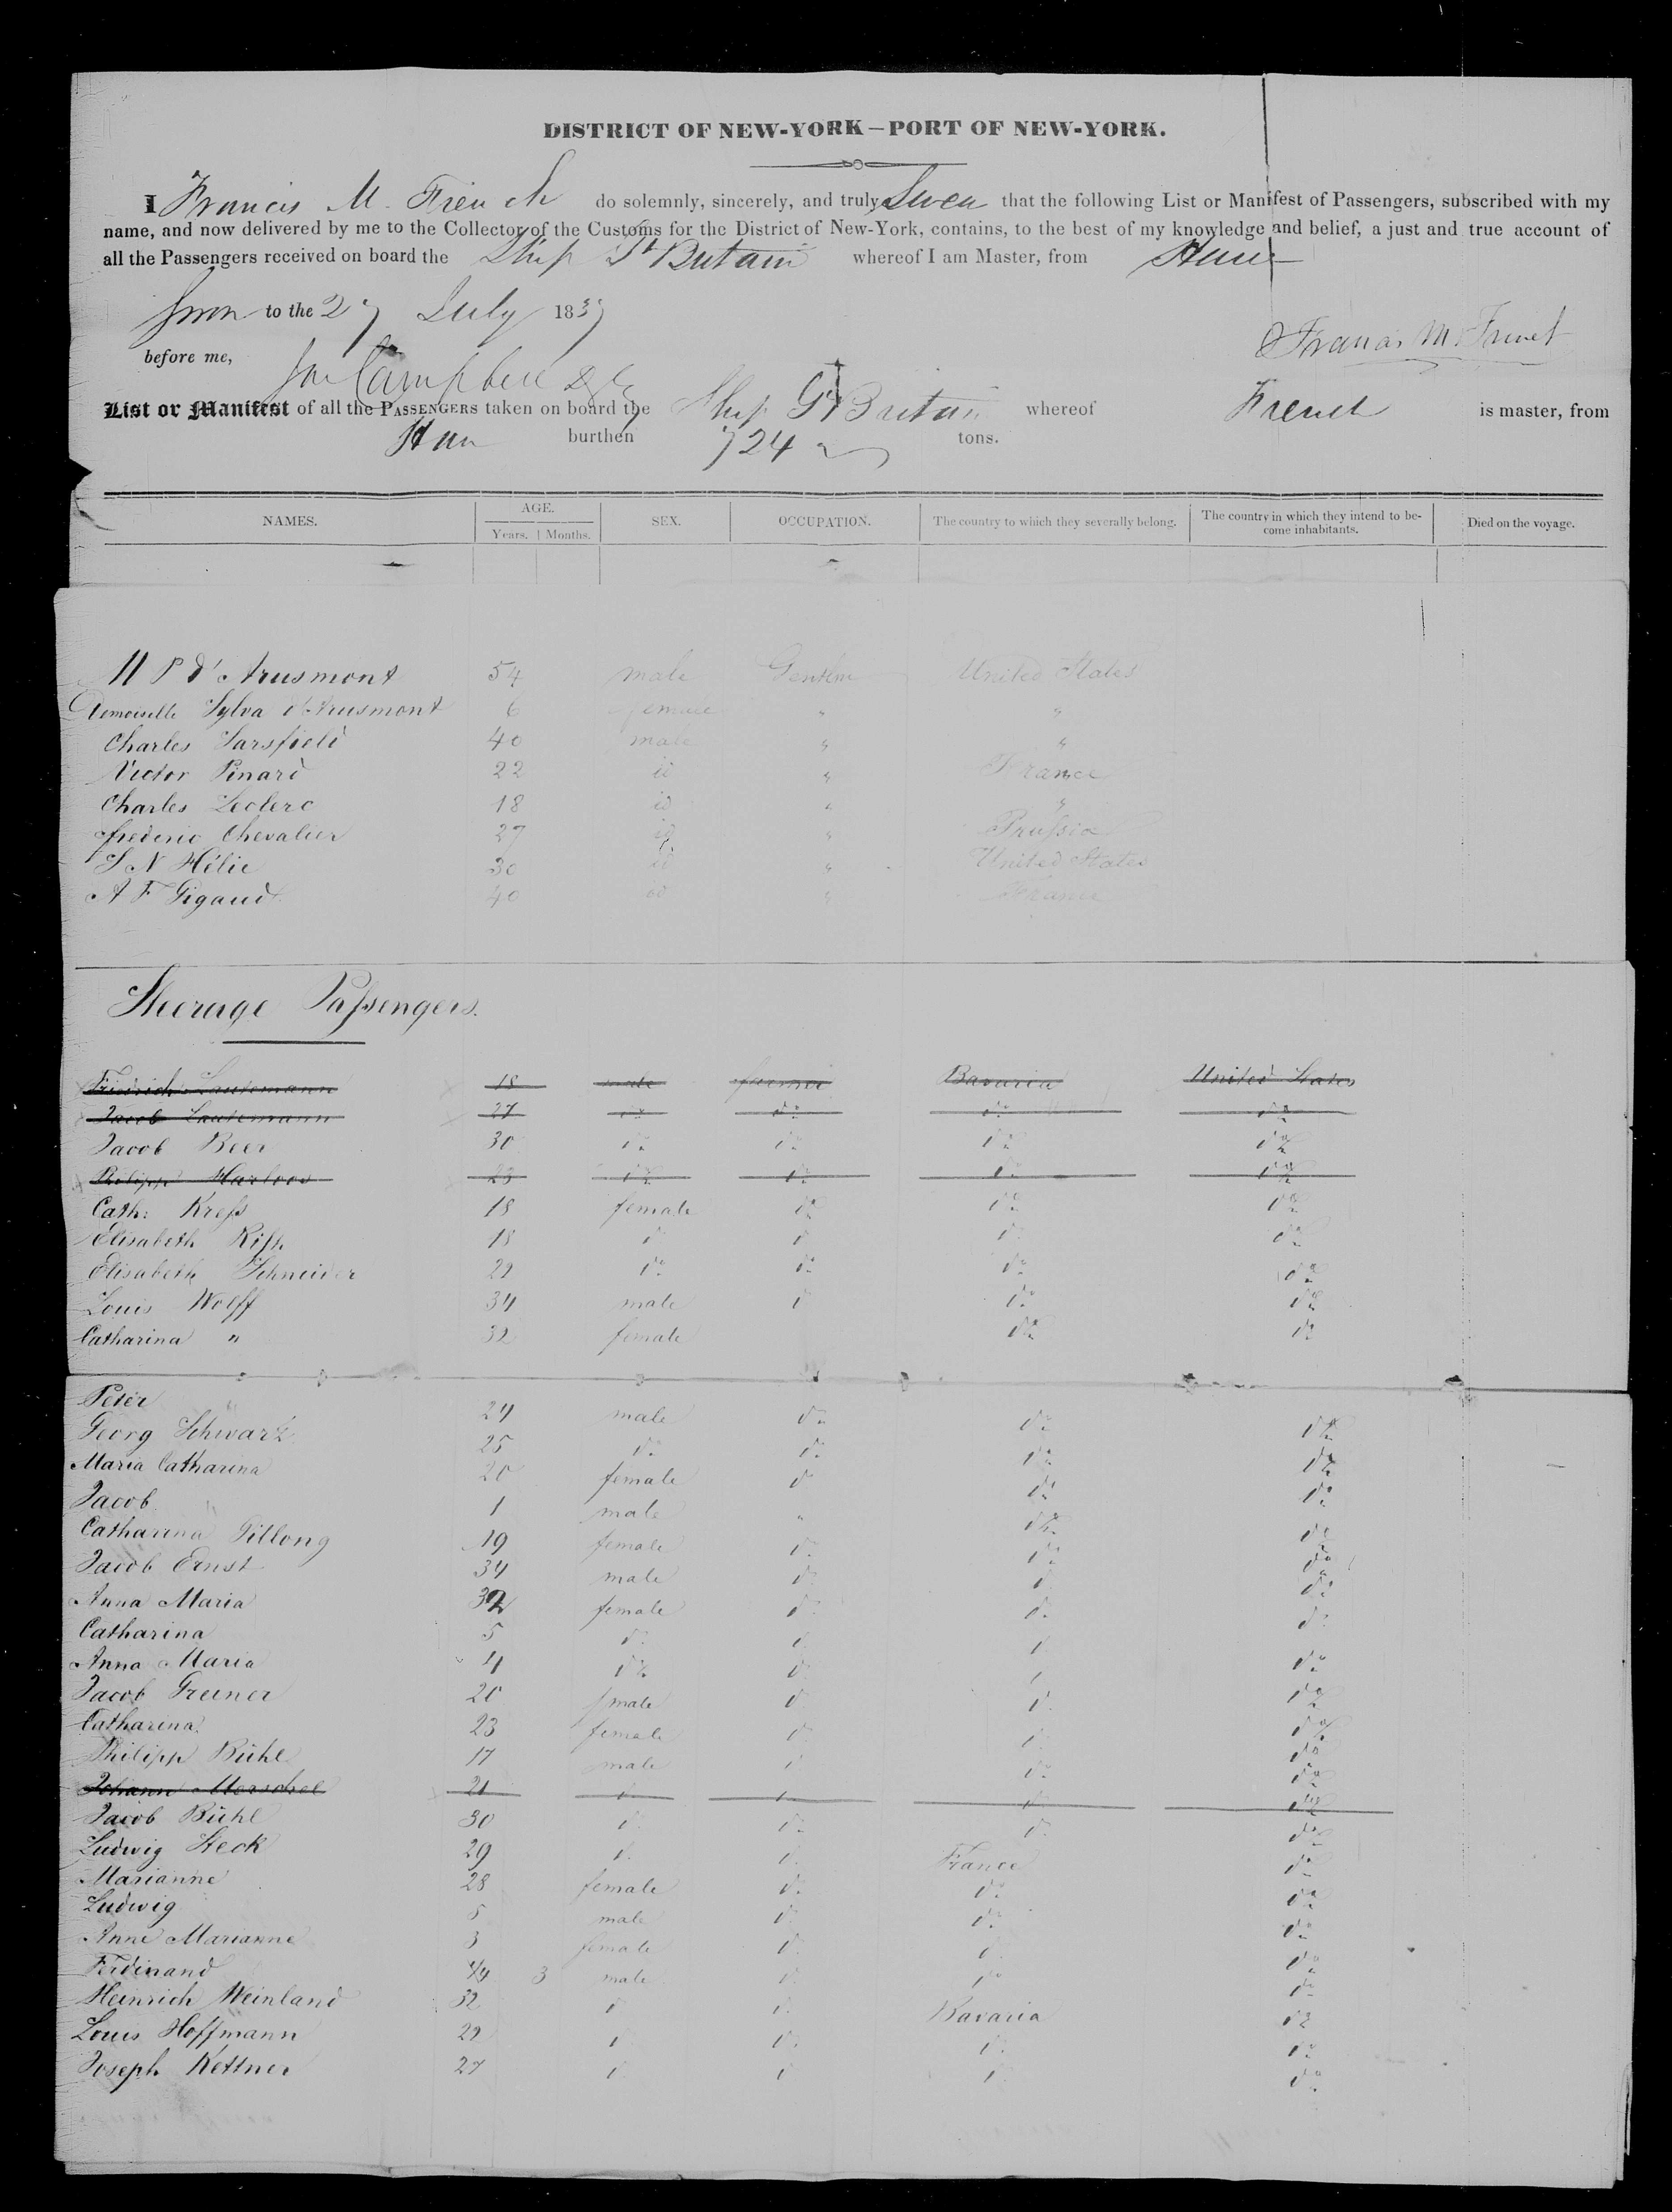 DISTRICT OF NEW-YORK—PORT OF NEW-YORK.
I Francis M. French do solemnly, sincerely, and truly Swear that the following List or Manifest of Passengers, subscribed with my
name, and now delivered by me to the Collector of the Customs for the District of New-York, contains, to the best of my knowledge and belief, a just and true account of
all the Passengers received on board the Ship Gt Britain whereof I am Master, from Havre
Sworn to the 27 July 1837
Francis M French
before me,
Campbell
List or Manifest of all the PASSENGERS taken on board the Ship Gt Britain whereof French is master, from
burthen 724 tons.
NAMES. AGE. Years. Months. SEX. OCCUPATION. The country to which they severally belong. The country in which they intend to become inhabitants. Died on the voyage.
P d'Arusmont 54 male Gentlm United States
Demoiselle Sylva d'Arusmont 6 female " "
Charles Sarsfield 40 male " "
Victor Pinard 22 id " France
Charles Leclerc 18 id " "
frederic Chevalier 27 id " Prussia
N Hélie 30 id " United States
A F Gigaud 40 id " France
Steerage Passengers.
Friedrich Lautemann 18 male farmer Bavaria United States
Jacob Lautemann 27 do do do do
Jacob Beer 30 do do do do
Philipp Harloos 23 do do do do
Cath: Kress 18 female do do do
Elisabeth 18 do do do do
Elisabeth Schneider 29 do do do do
Louis Wolff 34 male do do do
Catharina " 32 female do do
Peter " 24 male do do do
Georg Schwarz 25 do do do do
Maria Catharina 20 female do do do
Jacob " 1 male " do do
Catharina Pillong 19 female do do do
Jacob Ernst 34 male do do do
Anna Maria 32 female do do do
Catharina 5 do do do do
Anna Maria 4 do do do do
Jacob Greiner 20 male do do do
Catharina 23 female do do do
Philipp Bühl 17 male do do do
Johann Herschel 21 do do do do
Jacob Bühl 30 do do do do
Ludwig Heck 29 do do France do
Marianne 28 female do do do
Ludwig 5 male do do do
Anne Marianne 3 female do do do
Ferdinand 3 male do do do
Heinrich Weinland 32 do do Bavaria do
Louis Hoffmann 29 do do do do
Joseph Kettner 27 do do do do